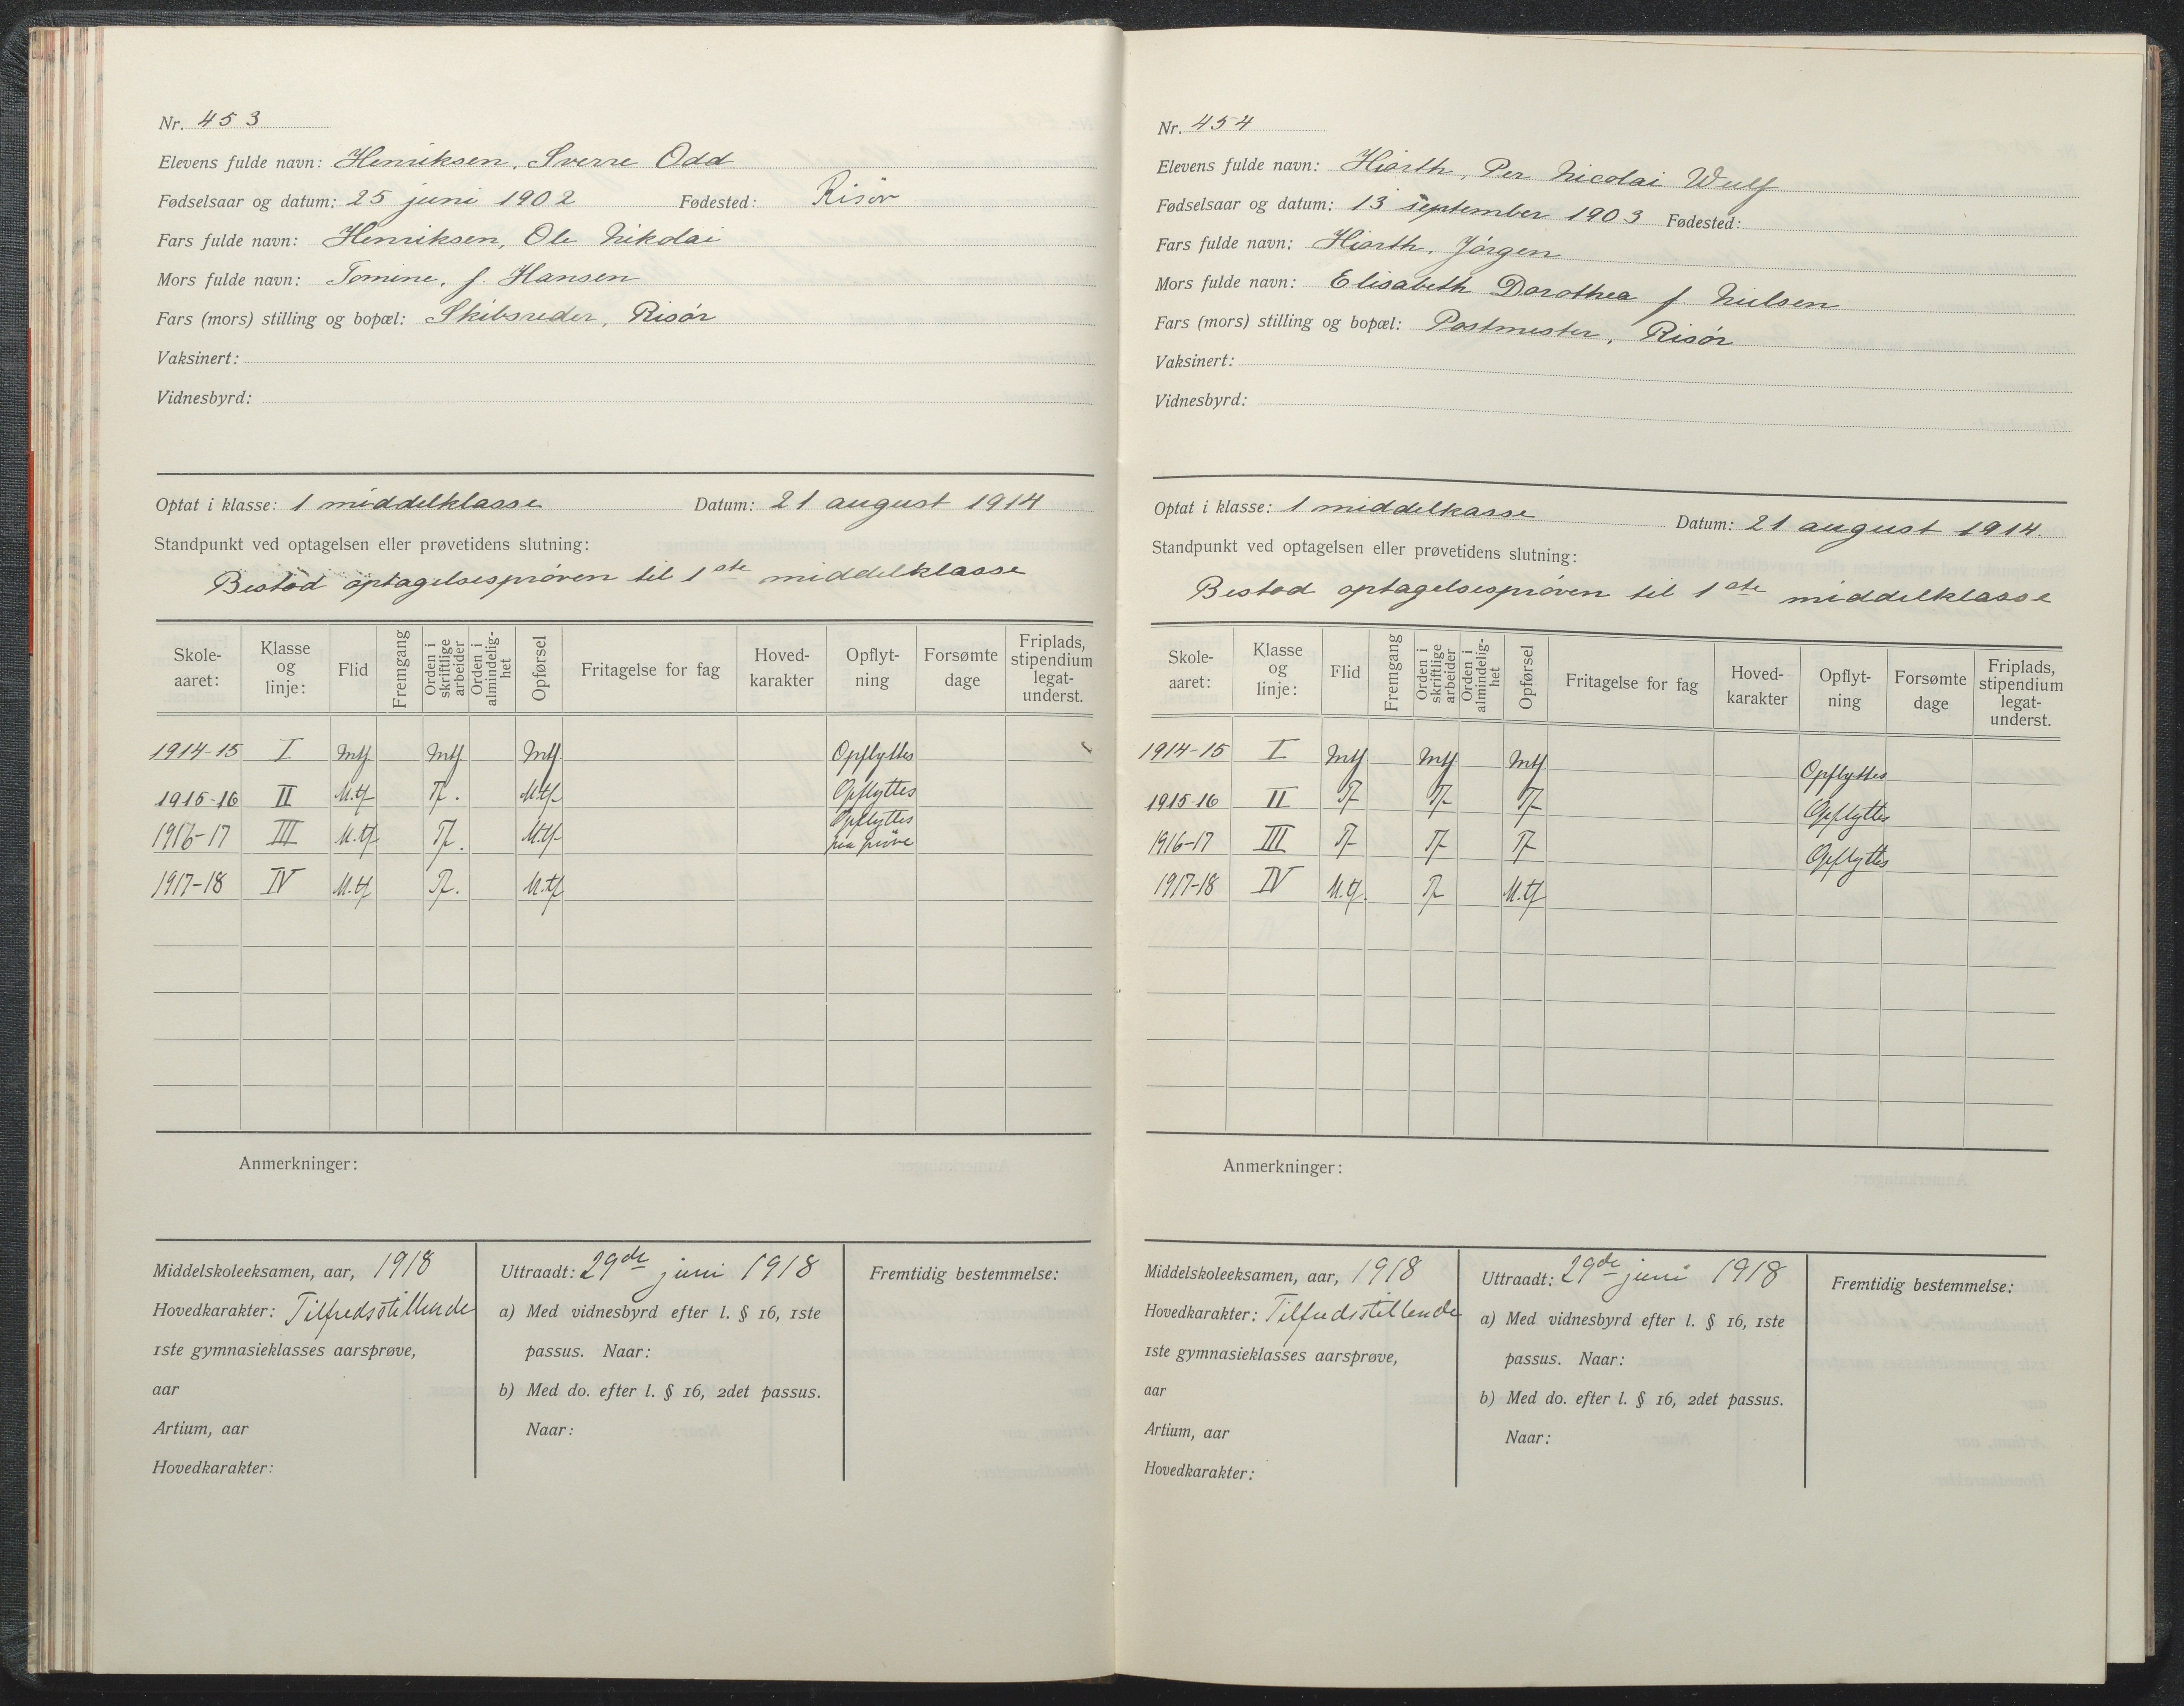 Nr. 453
Elevens fulde navn: Henriksen, Sverre Odd
Fødselsaar og datum: 25 juni 1902 Fødested: Risør
Fars fulde navn: Henriksen, Ole Nikolai
Mors fulde navn: Tomine, f. Hansen
Fars (mors) stilling og bopæl: Skibsreder, Risør
Vaksinert:
Vidnesbyrd:
Optat i klasse: 1 middelklasse Datum: 21 august 1914
Standpunkt ved optagelsen eller prøvetidens slutning:
Bestod optagelsesprøven til 1ste middelklasse
Skoleaaret: Klasse og linje: Flid Fremgang Orden i skriftlige arbeider Orden i almindelighet Opførsel Fritagelse for fag Hovedkarakter Opflytning Forsømte dage Friplads, stipendium legatunderst.
1914-15 I Mtf Mtf Mtf Opflyttes
1915-16 II M.tf Tf. M.tf Opflyttes
1916-17 III M.tf Tf. M.tf Opflyttes paa prøve
1917-18 IV M.tf Tf. M.tf
Anmerkninger:
Middelskoleeksamen, aar, 1918
Hovedkarakter: Tilfredsstillende
1ste gymnasieklasses aarsprøve,
aar
Artium, aar
Hovedkarakter:
Uttraadt: 29de juni 1918
a) Med vidnesbyrd efter l. § 16, 1ste
passus. Naar:
b) Med do. efter l. § 16, 2det passus.
Naar:
Fremtidig bestemmelse:
Nr. 454
Elevens fulde navn: Hiorth, Per Nicolai Wulf
Fødselsaar og datum: 13 september 1903 Fødested:
Fars fulde navn: Hiorth, Jörgen
Mors fulde navn: Elisabeth Dorothea f. Nielsen
Fars (mors) stilling og bopæl: Postmester, Risør
Vaksinert:
Vidnesbyrd:
Optat i klasse: 1 middelkasse Datum: 21 august 1914.
Standpunkt ved optagelsen eller prøvetidens slutning:
Bestod optagelsesprøven til 1ste middelklasse
Skoleaaret: Klasse og linje: Flid Fremgang Orden i skriftlige arbeider Orden i almindelighet Opførsel Fritagelse for fag Hovedkarakter Opflytning Forsømte dage Friplads, stipendium legatunderst.
1914-15 I Mtf Mtf Mtf Opflyttes
1915-16 II Tf Tf Tf Opflyttes
1916-17 III Tf Tf Tf Opflyttes
1917-18 IV M.tf. Tf M.tf
Anmerkninger:
Middelskoleeksamen, aar, 1918
Hovedkarakter: Tilfredsstillende
1ste gymnasieklasses aarsprøve,
aar
Artium, aar
Hovedkarakter:
Uttraadt: 29de juni 1918
a) Med vidnesbyrd efter l. § 16, 1ste
passus. Naar:
b) Med do. efter l. § 16, 2det passus.
Naar:
Fremtidig bestemmelse: